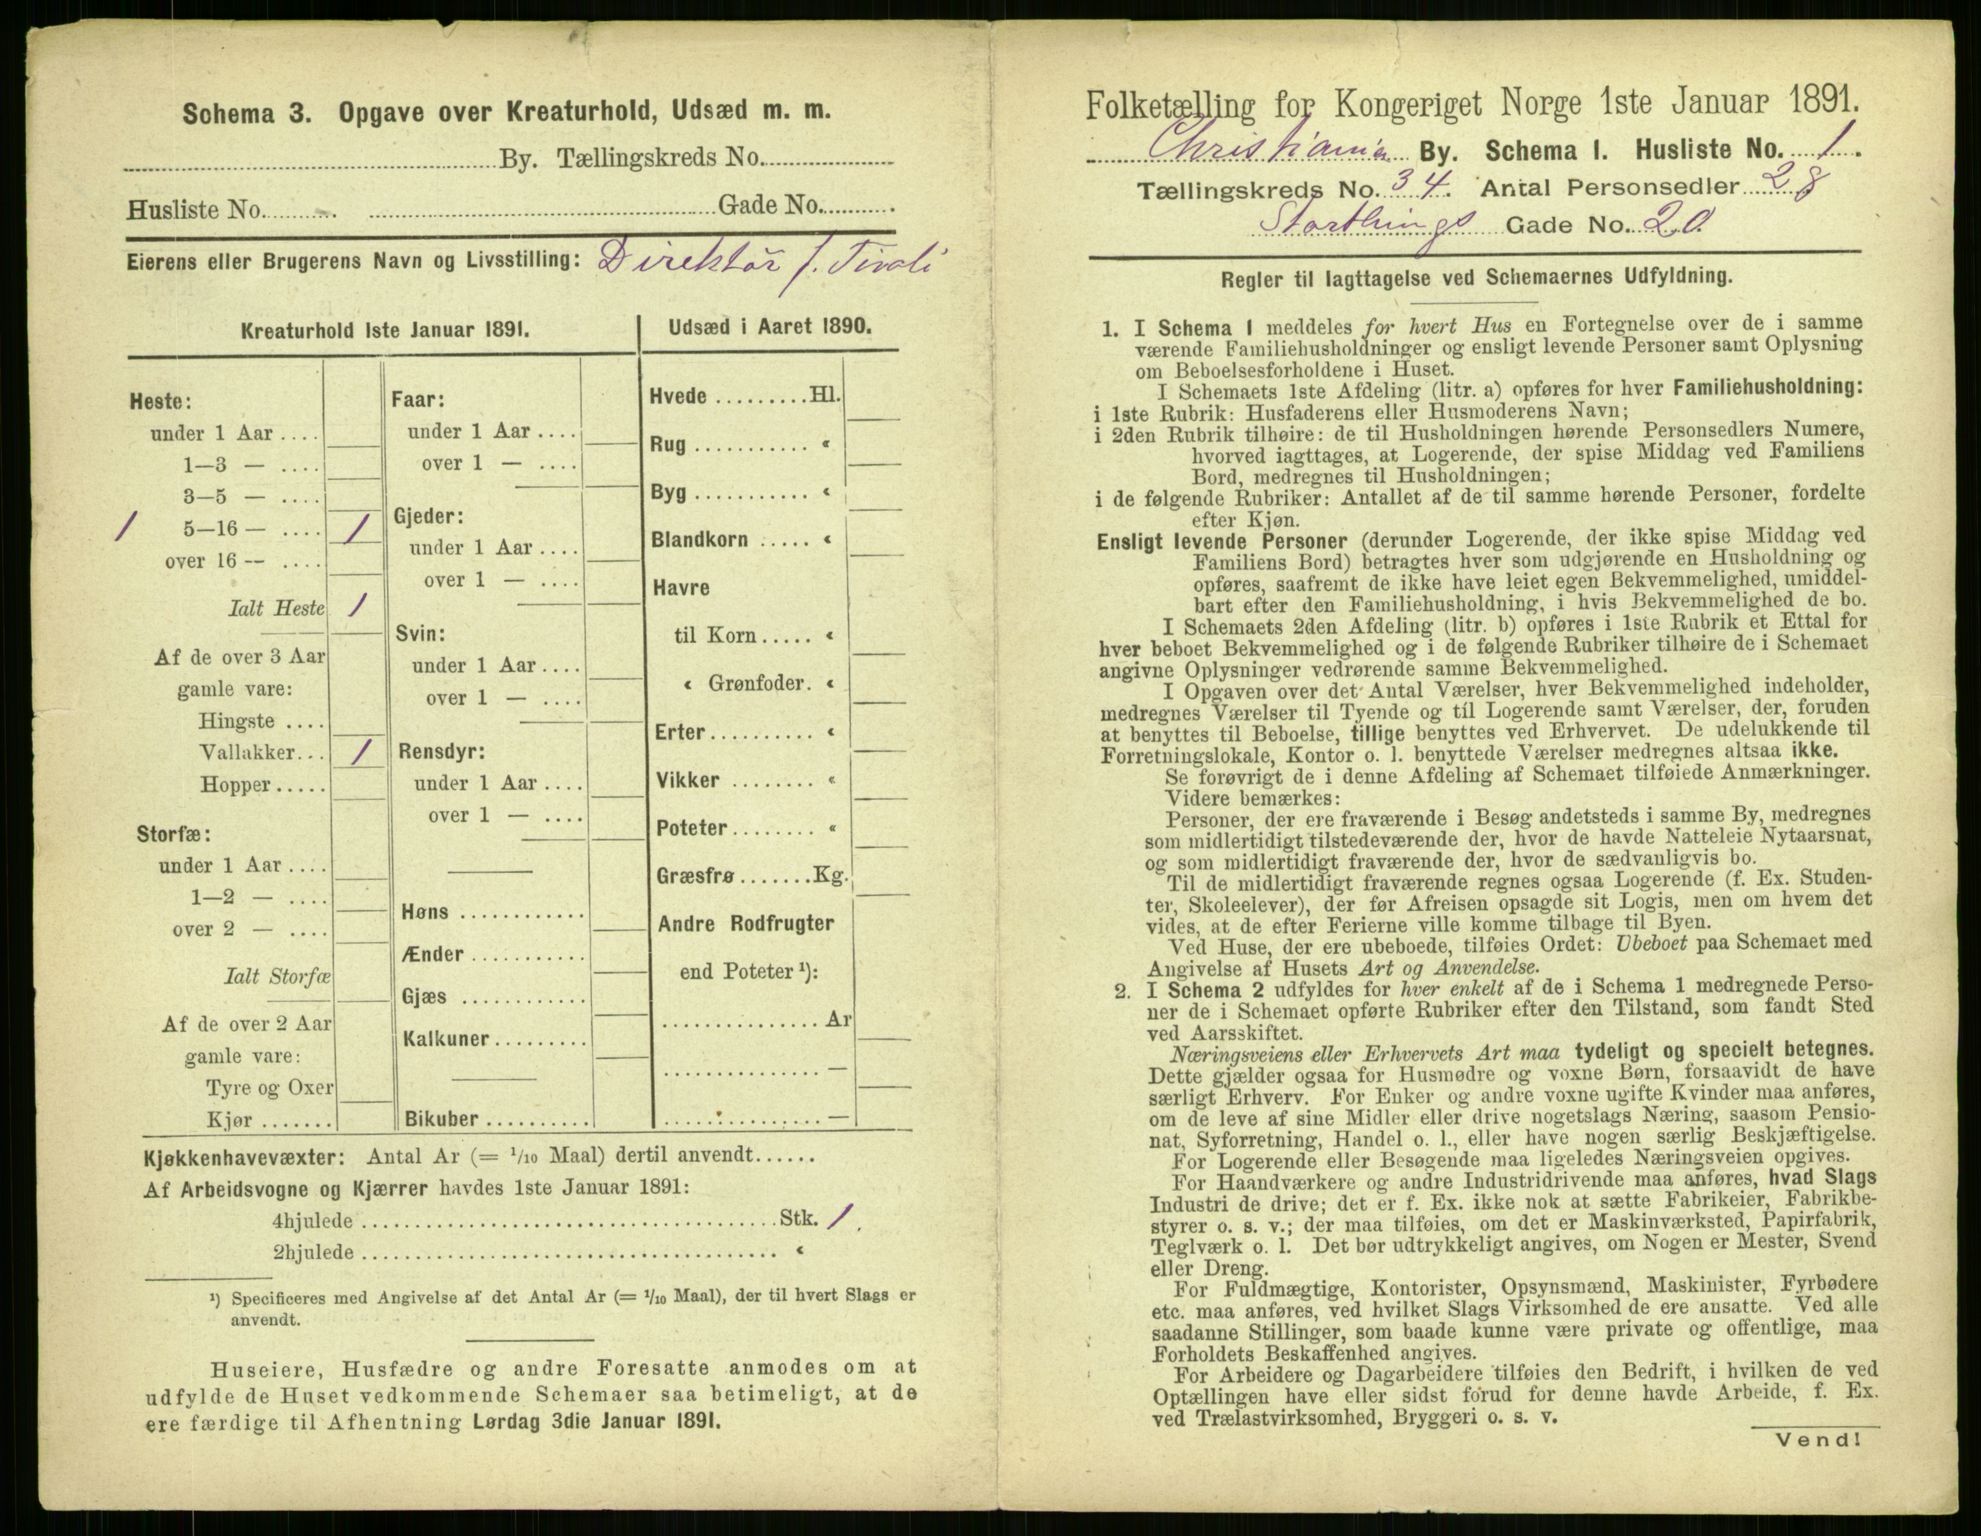 Schema 3. Opgave over Kreaturhold, Udsæd m. m.
By. Tællingskreds No.
Husliste No. Gade No.
Eierens eller Brugerens Navn og Livsstilling: Direktør f. Tivoli
Kreaturhold 1ste Januar 1891.
Heste:
under 1 Aar ....
1—3 — ....
3—5 — ....
1 5—16 — .... 1
over 16 — ....
Ialt Heste 1
Af de over 3 Aar
gamle vare:
Hingste ....
Vallakker... 1
Hopper .....
Storfæ:
under 1 Aar ....
1—2 — ....
over 2 — ....
Ialt Storfæ
Af de over 2 Aar
gamle vare:
Tyre og Oxer
Kjør .......
Faar:
under 1 Aar ....
over 1 — ....
Gjeder:
under 1 Aar ....
over 1 — ....
Svin:
under 1 Aar ....
over 1 — ....
Rensdyr:
under 1 Aar ....
over 1 — ....
Høns ............
Ænder ...........
Gjæs ............
Kalkuner.........
Bikuber ..........
Udsæd i Aaret 1890.
Hvede .........Hl.
Rug ........... «
Byg ........... «
Blandkorn ..... «
Havre
til Korn ..... «
« Grønfoder. «
Erter.......... «
Vikker ........ «
Poteter........ «
Græsfrø.......Kg.
Andre Rodfrugter
end Poteter ¹):
............... Ar
............... —
............... —
Kjøkkenhavevæxter: Antal Ar (= 1/10 Maal) dertil anvendt......
Af Arbeidsvogne og Kjærrer havdes 1ste Januar 1891:
4hjulede ........................................ Stk. 1.
2hjulede ........................................ «
¹) Specificeres med Angivelse af det Antal Ar (= 1/10 Maal), der til hvert Slags er
anvendt.
Huseiere, Husfædre og andre Foresatte anmodes om at
udfylde de Huset vedkommende Schemaer saa betimeligt, at de
ere færdige til Afhentning Lørdag 3die Januar 1891.
Folketælling for Kongeriget Norge 1ste Januar 1891.
Christiania By. Schema I. Husliste No. 1.
Tællingskreds No. 34. Antal Personsedler 28
Storthings Gade No. 20
Regler til Iagttagelse ved Schemaernes Udfyldning.
1. I Schema 1 meddeles for hvert Hus en Fortegnelse over de i samme
værende Familiehusholdninger og ensligt levende Personer samt Oplysning
om Beboelsesforholdene i Huset.
I Schemaets 1ste Afdeling (litr. a) opføres for hver Familiehusholdning:
i 1ste Rubrik: Husfaderens eller Husmoderens Navn;
i 2den Rubrik tilhøire: de til Husholdningen hørende Personsedlers Numere,
hvorved iagttages, at Logerende, der spise Middag ved Familiens
Bord, medregnes til Husholdningen;
i de følgende Rubriker: Antallet af de til samme hørende Personer, fordelte
efter Kjøn.
Ensligt levende Personer (derunder Logerende, der ikke spise Middag ved
Familiens Bord) betragtes hver som udgjørende en Husholdning og
opføres, saafremt de ikke have leiet egen Bekvemmelighed, umiddel-
bart efter den Familiehusholdning, i hvis Bekvemmelighed de bo.
I Schemaets 2den Afdeling (litr. b) opføres i 1ste Rubrik et Ettal for
hver beboet Bekvemmelighed og i de følgende Rubriker tilhøire de i Schemaet
angivne Oplysninger vedrørende samme Bekvemmelighed.
I Opgaven over det Antal Værelser, hver Bekvemmelighed indeholder,
medregnes Værelser til Tyende og til Logerende samt Værelser, der, foruden
at benyttes til Beboelse, tillige benyttes ved Erhvervet. De udelukkende til
Forretningslokale, Kontor o. l. benyttede Værelser medregnes altsaa ikke.
Se forøvrigt de i denne Afdeling af Schemaet tilføiede Anmærkninger.
Videre bemærkes:
Personer, der ere fraværende i Besøg andetsteds i samme By, medregnes
som midlertidigt tilstedeværende der, hvor de havde Natteleie Nytaarsnat,
og som midlertidigt fraværende der, hvor de sædvanligvis bo.
Til de midlertidigt fraværende regnes ogsaa Logerende (f. Ex. Studen-
ter, Skoleelever), der før Afreisen opsagde sit Logis, men om hvem det
vides, at de efter Ferierne ville komme tilbage til Byen.
Ved Huse, der ere ubeboede, tilføies Ordet: Ubeboet paa Schemaet med
Angivelse af Husets Art og Anvendelse.
2. I Schema 2 udfyldes for hver enkelt af de i Schema 1 medregnede Perso-
ner de i Schemaet opførte Rubriker efter den Tilstand, som fandt Sted
ved Aarsskiftet.
Næringsveiens eller Erhvervets Art maa tydeligt og specielt betegnes.
Dette gjælder ogsaa for Husmødre og voxne Børn, forsaavidt de have
særligt Erhverv. For Enker og andre voxne ugifte Kvinder maa anføres,
om de leve af sine Midler eller drive nogetslags Næring, saasom Pensio-
nat, Syforretning, Handel o. l., eller have nogen særlig Beskjæftigelse.
For Logerende eller Besøgende maa ligeledes Næringsveien opgives.
For Haandværkere og andre Industridrivende maa anføres, hvad Slags
Industri de drive; det er f. Ex. ikke nok at sætte Fabrikeier, Fabrikbe-
styrer o. s. v.; der maa tilføies, om det er Maskinværksted, Papirfabrik,
Teglværk o. l. Det bør udtrykkeligt angives, om Nogen er Mester, Svend
eller Dreng.
For Fuldmægtige, Kontorister, Opsynsmænd, Maskinister, Fyrbødere
etc. maa anføres, ved hvilket Slags Virksomhed de ere ansatte. Ved alle
saadanne Stillinger, som baade kunne være private og offentlige, maa
Forholdets Beskaffenhed angives.
For Arbeidere og Dagarbeidere tilføies den Bedrift, i hvilken de ved
Optællingen have eller sidst forud for denne havde Arbeide, f. Ex.
ved Trælastvirksomhed, Bryggeri o. s. v.
Vend!